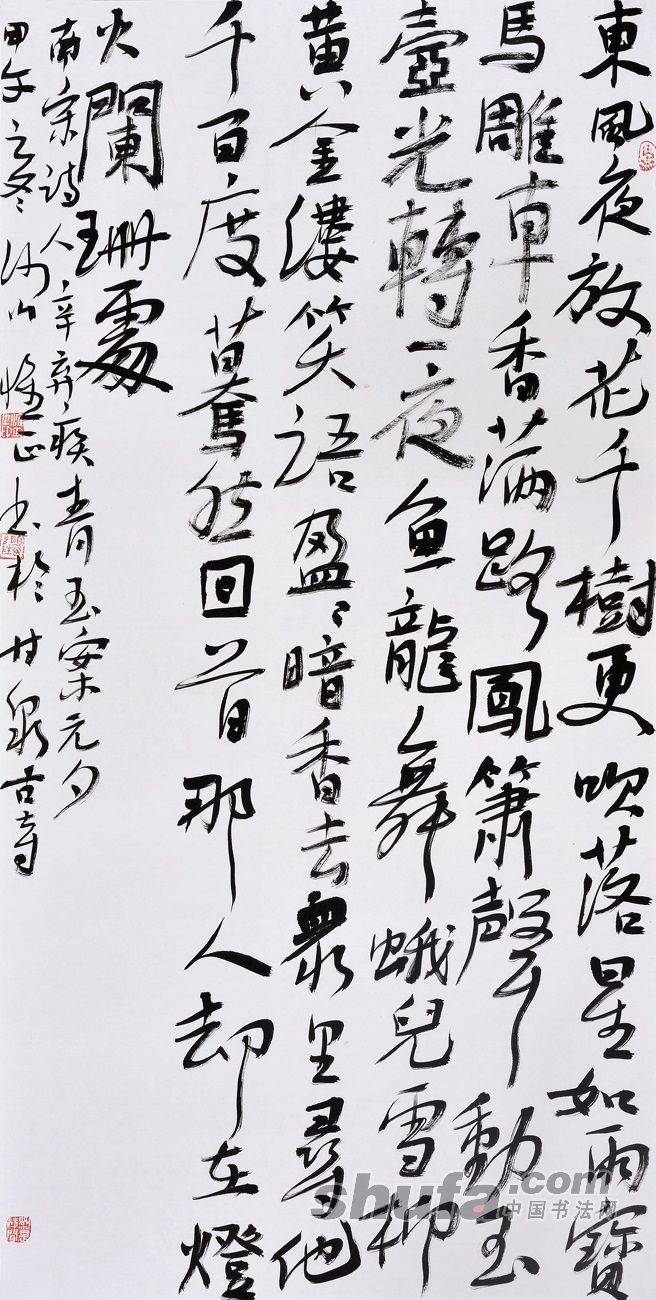 東風夜放花千樹更吹落星如雨寶
馬雕車香滿路鳳簫聲動玉
壺光轉一夜魚龍舞蛾兒雪柳
黄金縷笑語盈〻暗香去衆里尋他
千百度驀然回首那人却在燈
火闌珊處
南宋詩人辛弃疾青玉案元夕
甲午之冬 正書於甘泉古寺
shufa.com
中国书法网